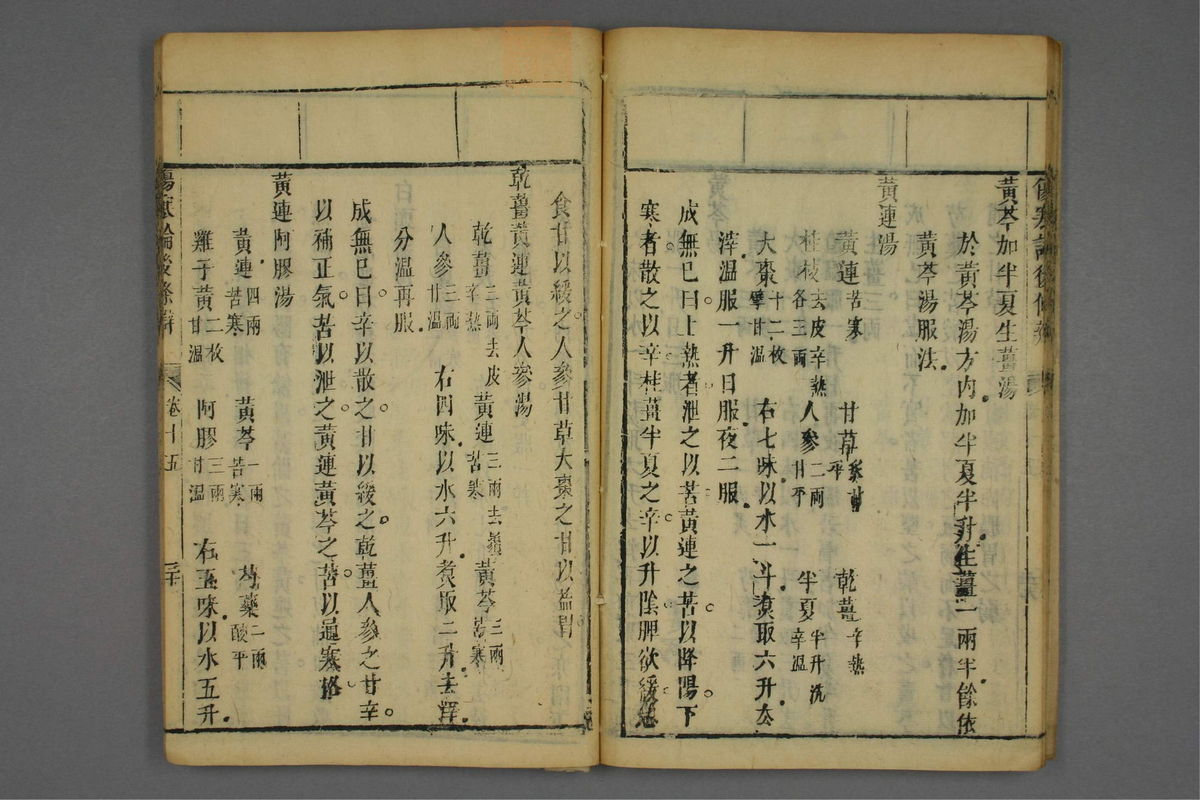 黃芩加半夏生薑湯
於黃芩湯方內加半夏半升生薑一兩半餘依
黃芩湯服法
黃連湯
黃連苦寒 甘草炙甘平 乾薑辛熱
桂枝去皮辛熱各三兩 人參二兩甘平 半夏半升洗辛溫
大棗十二枚擘甘溫 右七味以水一斗煑取六升去
滓溫服一升日服夜二服
成無已曰上熱者泄之以苦黃連之苦以降陽下
寒者散之以辛桂薑半夏之辛以升陰脾欲緩急
食甘以緩之人參甘草大棗之甘以益胃
乾薑黃連黃芩人參湯
乾薑三兩去皮辛熱 黃連三兩去鬚苦寒 黃芩三兩苦寒
人參三兩甘溫 右四味以水六升煮取二升去滓
分溫再服
成無已曰辛以散之甘以緩之乾薑人參之甘辛
以補正氣苦以泄之黃連黃芩之苦以通寒格
黃連阿膠湯
黃連四兩苦寒 黃芩一兩苦寒 芍藥二兩酸平
雞子黃二枚甘溫 阿膠三兩甘溫 右五味以水五升
傷寒論後條辨 卷十五 三十